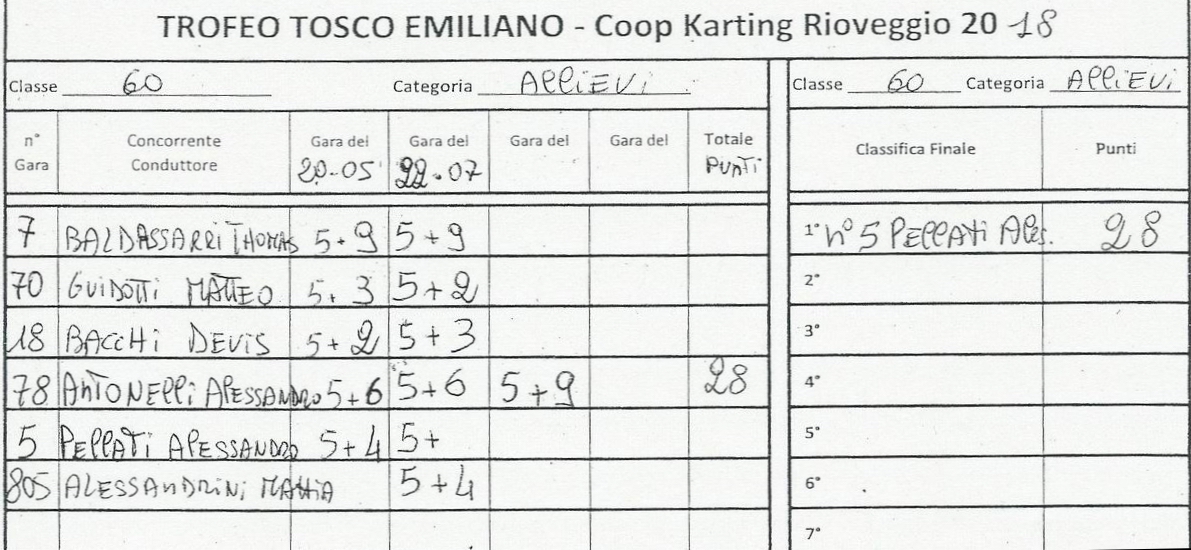 TROFEO TOSCO EMILIANO - Coop Karting Rioveggio 2018
Classe 60 Categoria ALLIEVI
n° Gara Concorrente Conduttore Gara del 20-05 Gara del 22-07 Gara del Gara del Totale PUNTI
7 BALDASSARRI THOMAS 5+9 5+9
70 GUIDOTTI MATTEO 5+3 5+2
18 BACCHI DEVIS 5+2 5+3
78 ANTONELLI ALESSANDRO 5+6 5+6 5+9 28
5 PELLATI ALESSANDRO 5+4 5+
805 ALESSANDRINI MATTIA 5+4
Classe 60 Categoria ALLIEVI
Classifica Finale Punti
1° n° 5 PELLATI ALES. 28
2°
3°
4°
5°
6°
7°